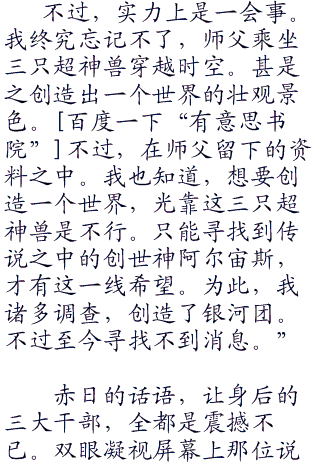 不过，实力上是一会事。
我终究忘记不了，师父乘坐
三只超神兽穿越时空。甚是
之创造出一个世界的壮观景
色。[百度一下“有意思书
院”]不过，在师父留下的资
料之中。我也知道，想要创
造一个世界，光靠这三只超
神兽是不行。只能寻找到传
说之中的创世神阿尔宙斯，
才有这一线希望。为此，我
诸多调查，创造了银河团。
不过至今寻找不到消息。”
赤日的话语，让身后的
三大干部，全都是震撼不
已。双眼凝视屏幕上那位说